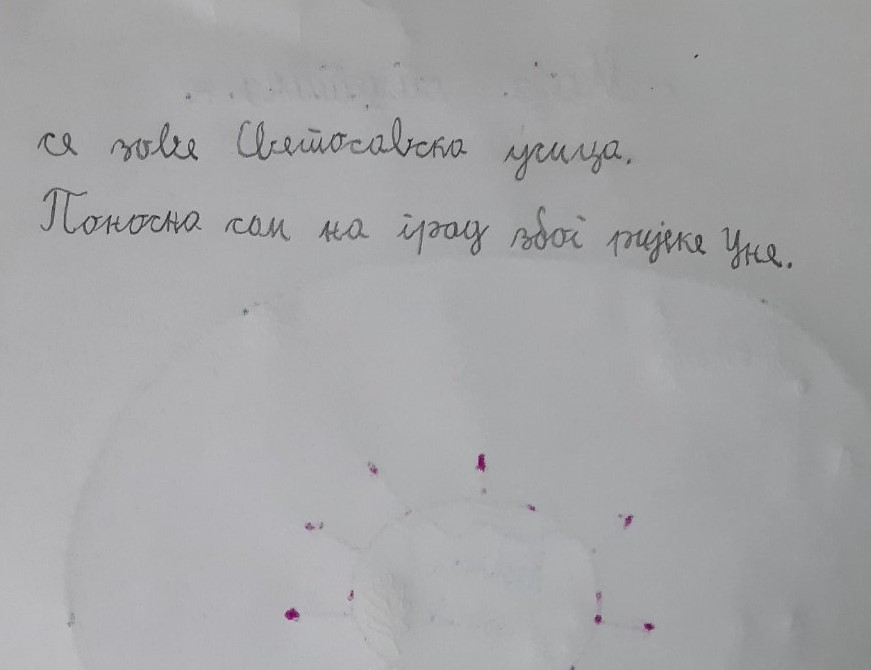 се зове Светосавска улица.
Поносна сам на град због ријеке Уне.